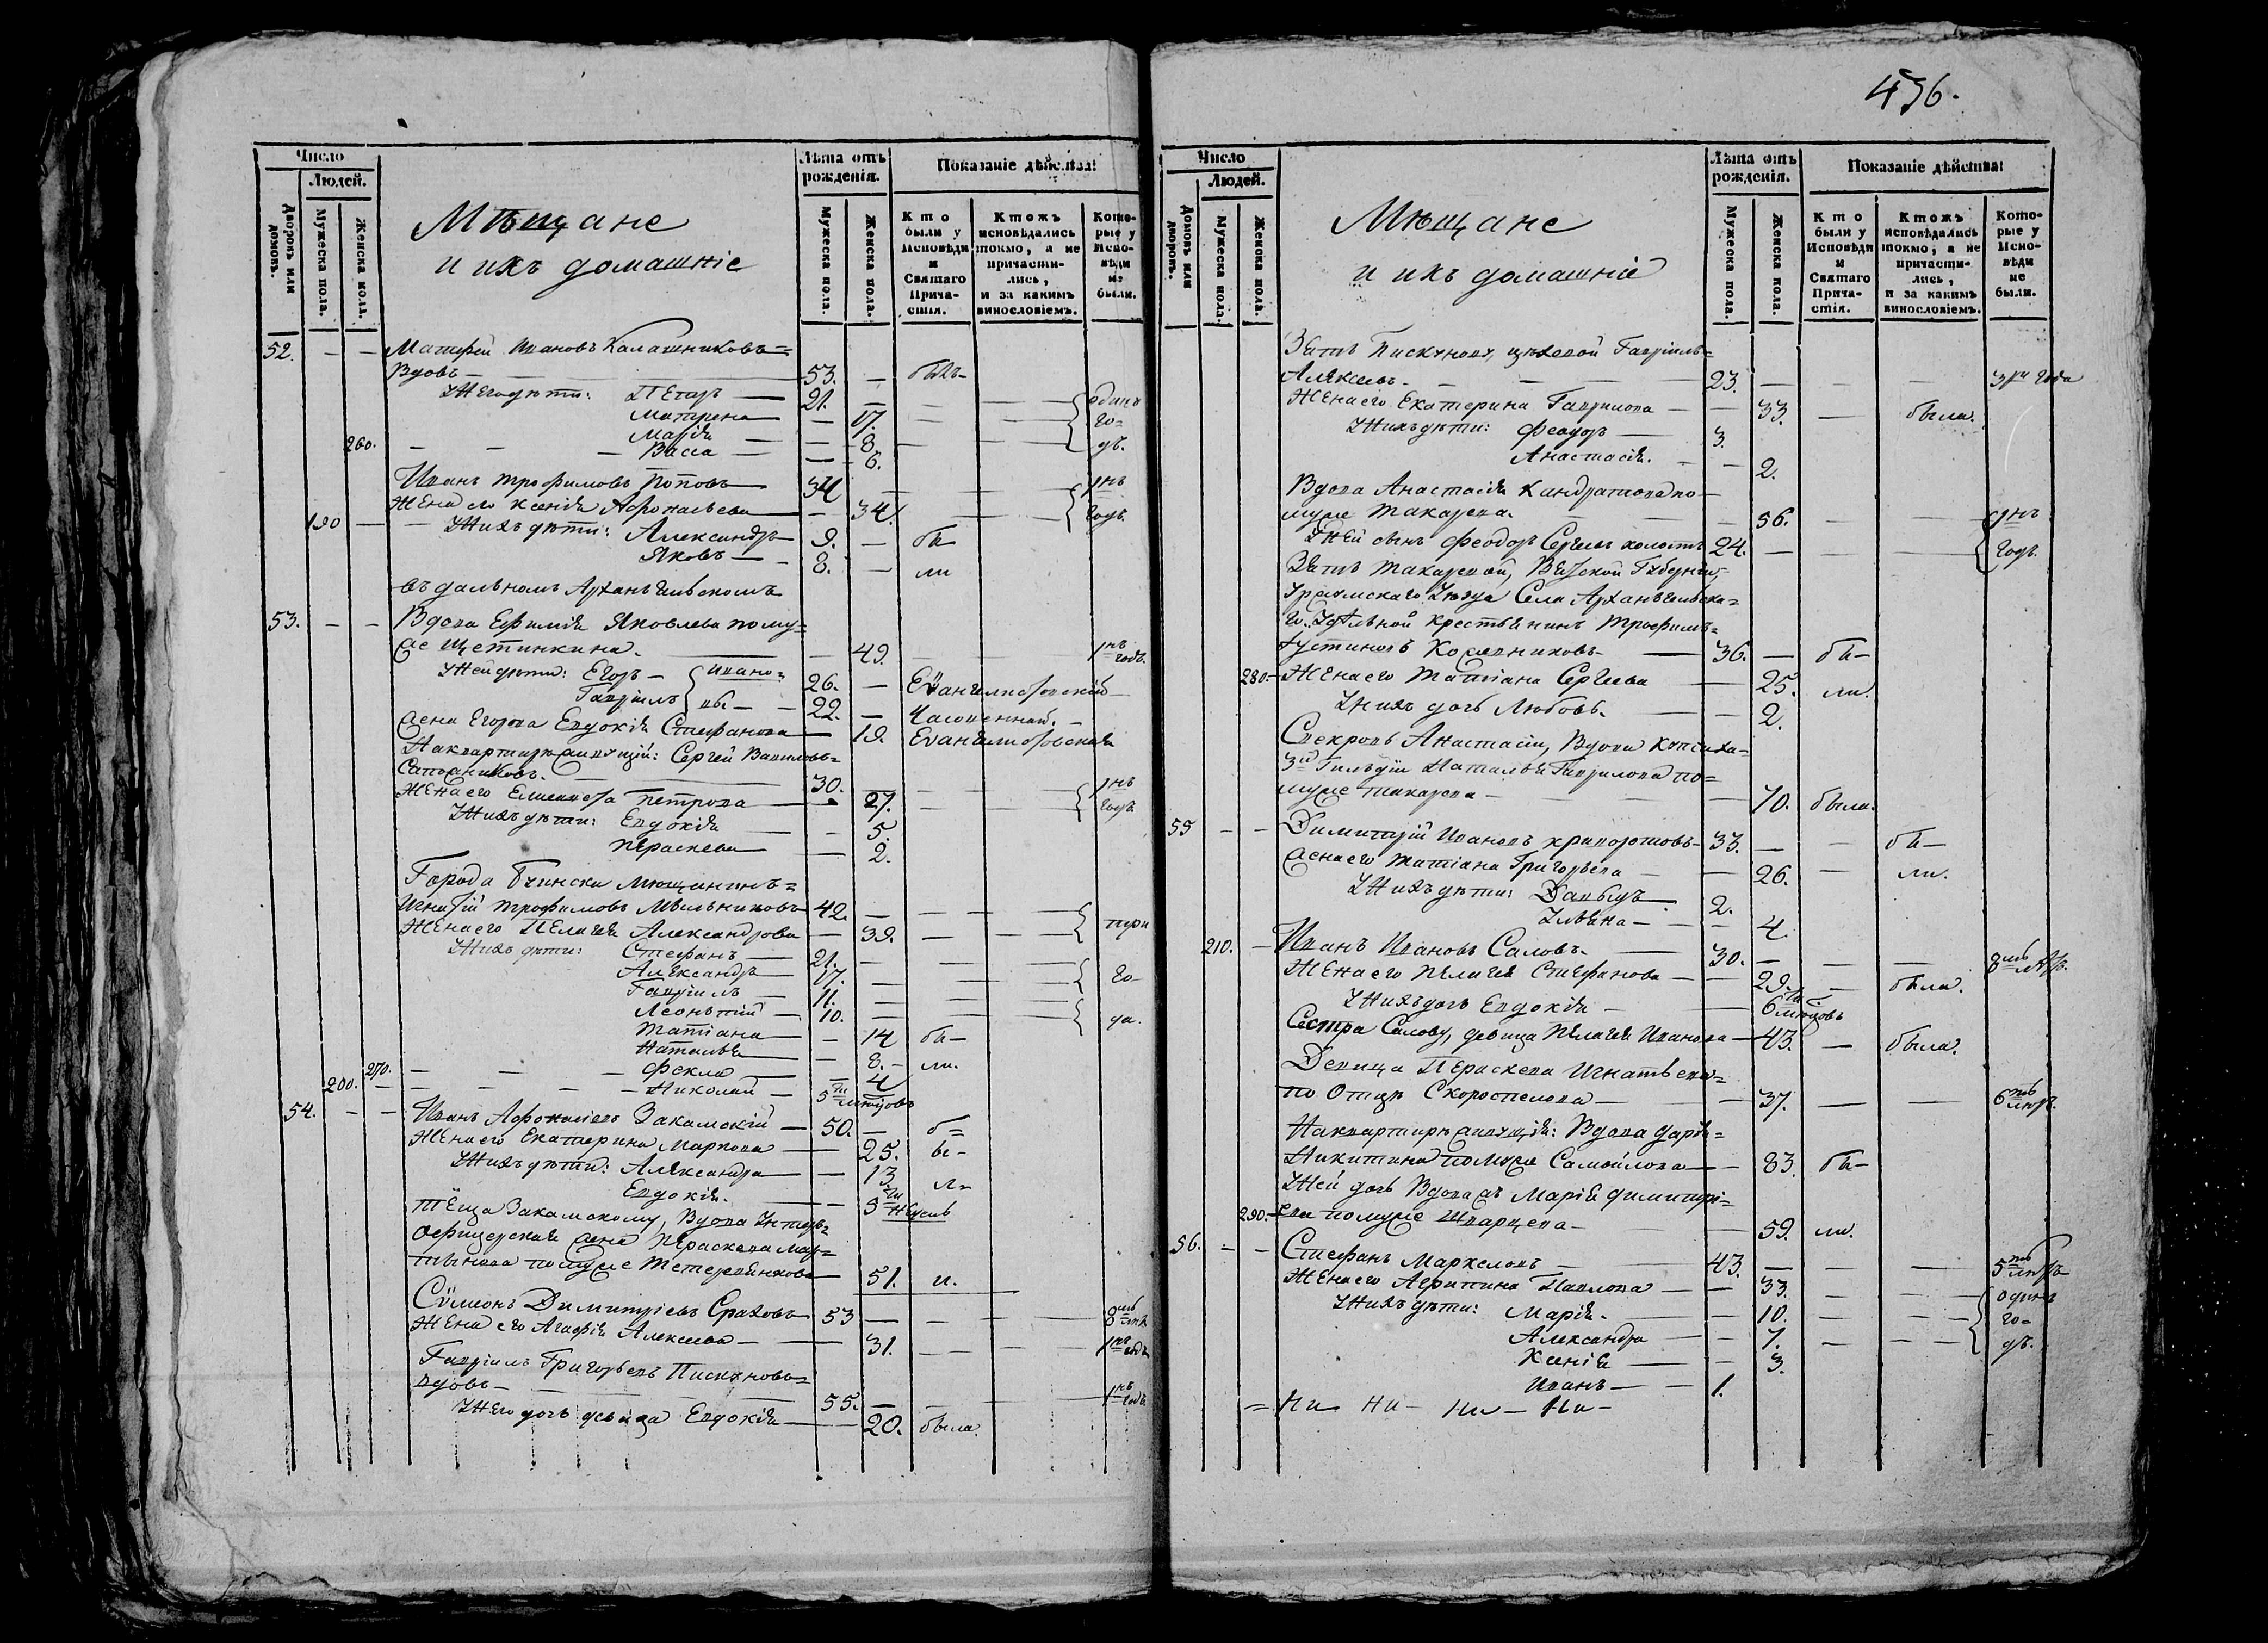 Число
Людей.
Дворовъ или домовъ.
Мужеска пола.
Женска пола.
Мѣщане
и ихъ домашніе
Лѣта отъ рожденія.
Мужеска пола.
Женска пола.
Показаніе дѣйства:
Кто были у Исповѣди и Святаго Прича-стія.
Ктожъ исповѣдались токмо, а не причасти-лись, и за какимъ винословіемъ.
Кото-рые у Испо-вѣди не были.
52. — — Матфей Ивановъ Калашниковъ=
Вдовъ — 53. — былъ
У Него дѣти: Петръ — 21. — одинъ
Матрена — 17. го=
Марія — 8. дъ.
260. Васса — 6.
Иванъ Трофимовъ Поповъ 34 — 1нъ
Жена его Ксенія Афонасьева — 34. годъ.
190 — У Нихъ дѣти: Александръ 9. — бы
Яковъ — 8. — ли
въ дальномъ Архангельскомъ
53. — — Вдова Ефимія Яковлева по му=
жѣ Щетинкина. — 49. 1нъ годъ.
У Ней дѣти: Егоръ — { Ивано= 26. — Еѵангелистовскій
Гавріилъ { вы — 22. — Часовенной.
жена Егорова Евдокія Стефанова — 19. Евангелистовская
На квартирѣ живущій: Сергей Васильевъ=
Сапожниковъ. 30. — 1нъ
Жена его Елисавета Петрова — 27. годъ
У Нихъ дѣти: Евдокія — 5.
Параскева — 2.
Города Буинска мѣщанинъ=
Игнатій Трофимовъ Мѣльниковъ 42. — три
Жена его Пелагея Александрова — 39.
У Нихъ дѣти: Стефанъ — 21. —
Александръ — 17. — го-
Гавріилъ — 11. —
Леонътій — 10. — да.
Татіана — 14 бы-
Наталья — 8. — ли.
270. Фекла — 4
200. Николай — 5ти мѣсяцовъ
54. — — Иванъ Афонасіевъ Закамскій — 50. — б=
Жена его Екатерина Маркова — 25. ы-
У Нихъ дѣти: Александра — 13 л=
Евдокія. — 5ти недель
Тёща Закамскому, Вдова Унтеръ=
офицерская жена Параскева Мар=
тынова по мужѣ Тетеревникова 51. и.
Сѵмеонъ Димитріевъ Сраховъ 53 — 8мь лѣтъ
Жена его Агафія Алексеева — 31. 1нъ годъ
Гавріилъ Григорьевъ Пискуновъ=
вдовъ — 55. — 1нъ годъ
У Него дочь девица Евдокія — 20. была.
436.
Число
Людей.
Домовъ или дворовъ.
Мужеска пола.
Женска пола.
Мѣщане
и ихъ домашніе
Лѣта отъ рожденія.
Мужеска пола.
Женска пола.
Показаніе дѣйства:
Кто были у Исповѣди и Святаго Прича-стія.
Ктожъ исповѣдались токмо, а не причасти-лись, и за какимъ винословіемъ.
Кото-рые у Испо-вѣди не были.
Зять Пискунову, цеховой Гавріилъ=
Алексеевъ. — 23. — 3ри года
Жена его Екатерина Гаврилова — 33. — была.
У Нихъ дѣти: Феодоръ — 3.
Анастасія. — 2.
Вдова Анастасія Кандратова по
мужѣ Макарова. — 56. — 1нъ
У Ней сынъ Феодоръ Сергеевъ холостъ 24. — годъ.
Зять Макаровой, Вятской Губерніи,
Уржумскаго Уѣзда Села Архангельска=
го. Удѣльной крестьянинъ Трофимъ=
Устиновъ — 36. — бы-
280. — Жена его Татіана Сергеева — 25. ли.
У Нихъ дочь Любовь. — 2.
Свекровь Анастасіи, Вдова Купчиха=
3й Гильдіи Наталья Гаврилова по=
мужѣ Макарова — 70. была.
55 — — Димитрій Ивановъ Криворотовъ — 33. — бы-
жена его Татіана Григорьева — 26. — ли.
У Нихъ дѣти: Давыдъ — 2.
Ульяна — 4.
210. — Иванъ Ивановъ Саловъ. — 30. — 8мь лѣтъ.
Жена его Пелагея Стефанова — 29. — была.
У Нихъ дочь Евдокія — 6ти мѣсяцовъ
Сестра Салову, девица Пелагея Иванова — 43. — была.
Девица Параскева Игнатьева=
по Отцѣ Скороспелова — 37. — 6ть лѣтъ.
На квартирѣ живущія: Вдова Дарія=
Никитина по мужѣ Самойлова — 83. бы-
У Ней дочь Вдова жъ Марія Димитрі=
290. — ева по мужѣ Шварцева — 59. ли.
56. — — Стефанъ Маркеловъ — 43. — 5ть лѣтъ
Жена его Агрипина Павлова — 33. — одинъ
У Нихъ дѣти: Марія. — 10. — го=
Александра — 7. — дъ.
Ксенія — 3.
Иванъ — 1.
= Ни — Ни — Ни — Ни —